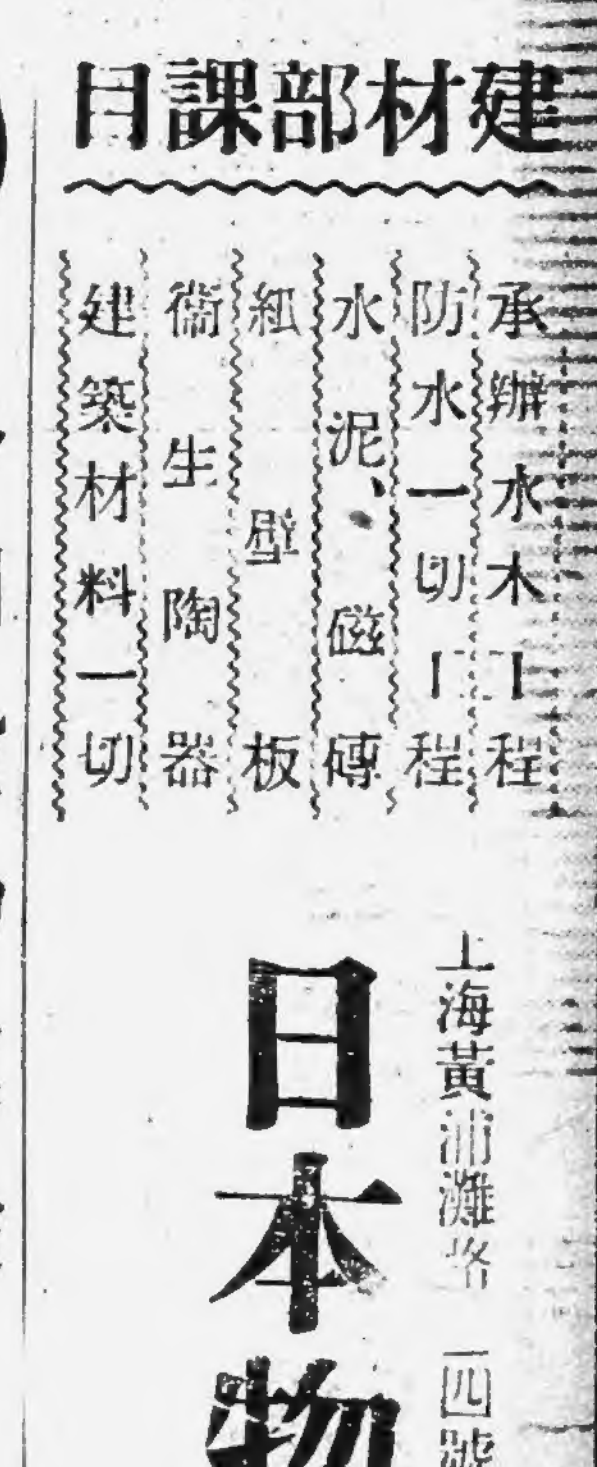 建材部課目
承辦水木工程
防水一切工程
水泥、磁磚
紙壁板
衞生陶器
建築材料一切
上海黃浦灘路 四號
日本物